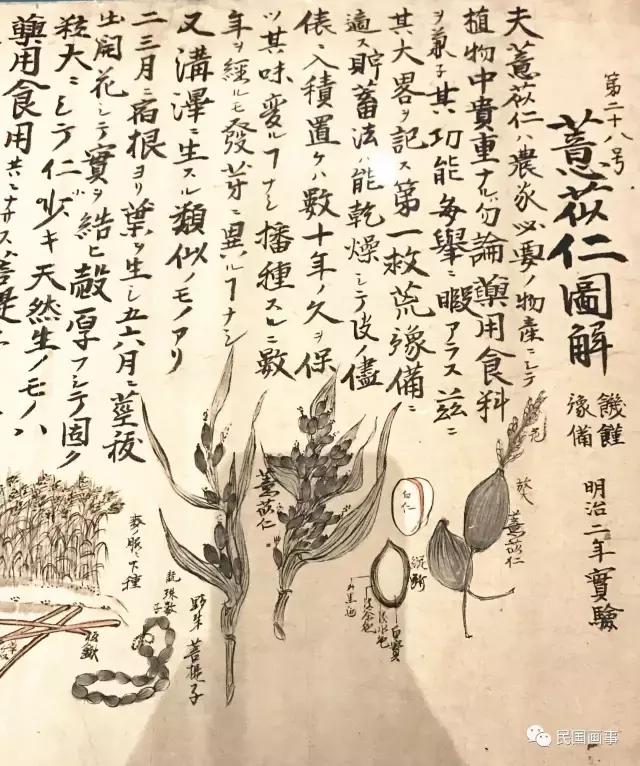 第二十八号
薏苡仁圖解
饑饉
豫備
明治二年實驗
夫薏苡仁ハ農家必要ノ物産ニシテ
植物中貴重ナル勿論藥用食料
ヲ兼子其功能毎擧ニ暇アラス茲ニ
其大畧ヲ記ス第一救荒豫備ニ
適ス貯蓄法ハ能乾燥シテ皮ノ儘
俵ニ入積置ケハ數十年ノ久ヲ保
ツ其味変ルヿナシ播種スルニ数
年ヲ經ルモ發芽ニ異ルヿナシ
又溝澤ニ生スル類似ノモノアリ
二三月ニ宿根ヨリ葉ヲ生シ五六月ニ莖
出開花シテ實ヲ結ヒ殼厚フシテ固ク
粒大ニシテ仁小少キ天然生ノモノハ
藥用食用共ニナサス菩提
花
薏苡仁
白仁
薏苡仁
野生 菩提子
數珠
民国画事